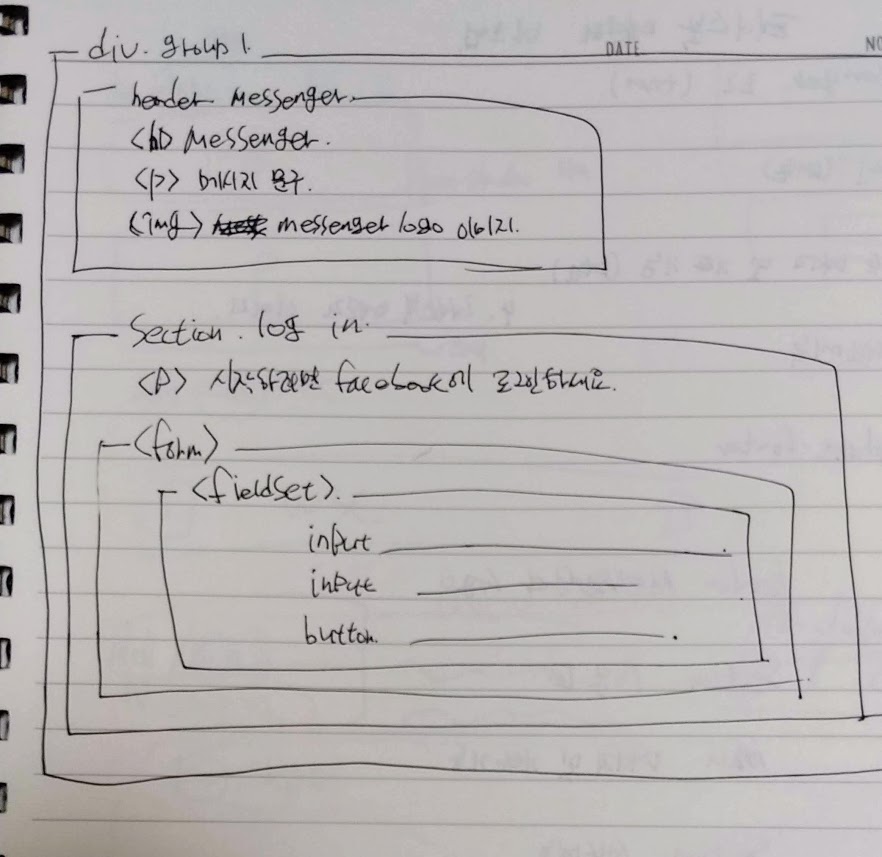 div. group 1.
DATE
NO
header Messenger.
<h1> Messenger.
<p> 메시지 문구.
<img> messenger logo 이미지.
Section. log in.
<p> 시작하려면 facebook에 로그인하세요.
<form>
<fieldset>.
input
input
button.